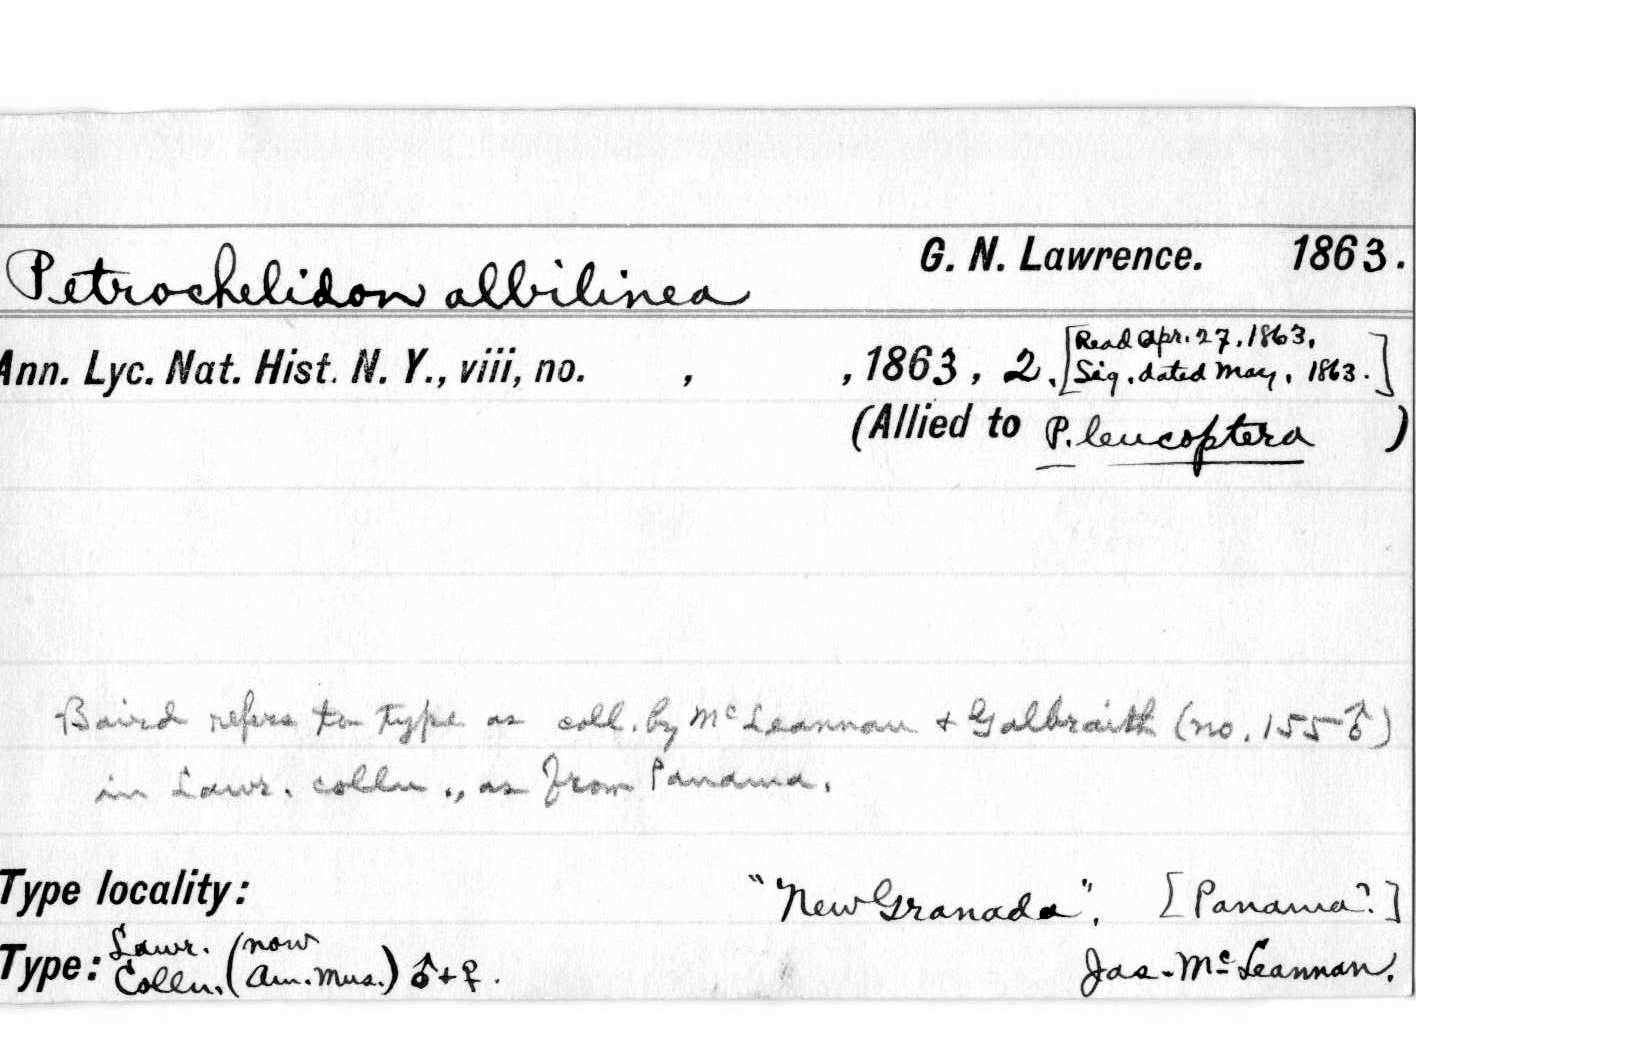 Petrochelidon albilinea G. N. Lawrence. 1863.
Ann. Lyc. Nat. Hist. N. Y., viii, no. , , 1863, 2. [Read Apr. 27, 1863.
Sig. dated May, 1863.]
(Allied to P. leucoptera )
Baird refers to type as coll. by McLeannan + Galbraith (no. 155 ♂)
in Lawr. colln., as from Panama.
Type locality: "New Granada". [Panama?]
Type: Lawr. Colln. (now Am. Mus.) ♂ + ♀. Jas. McLeannan.